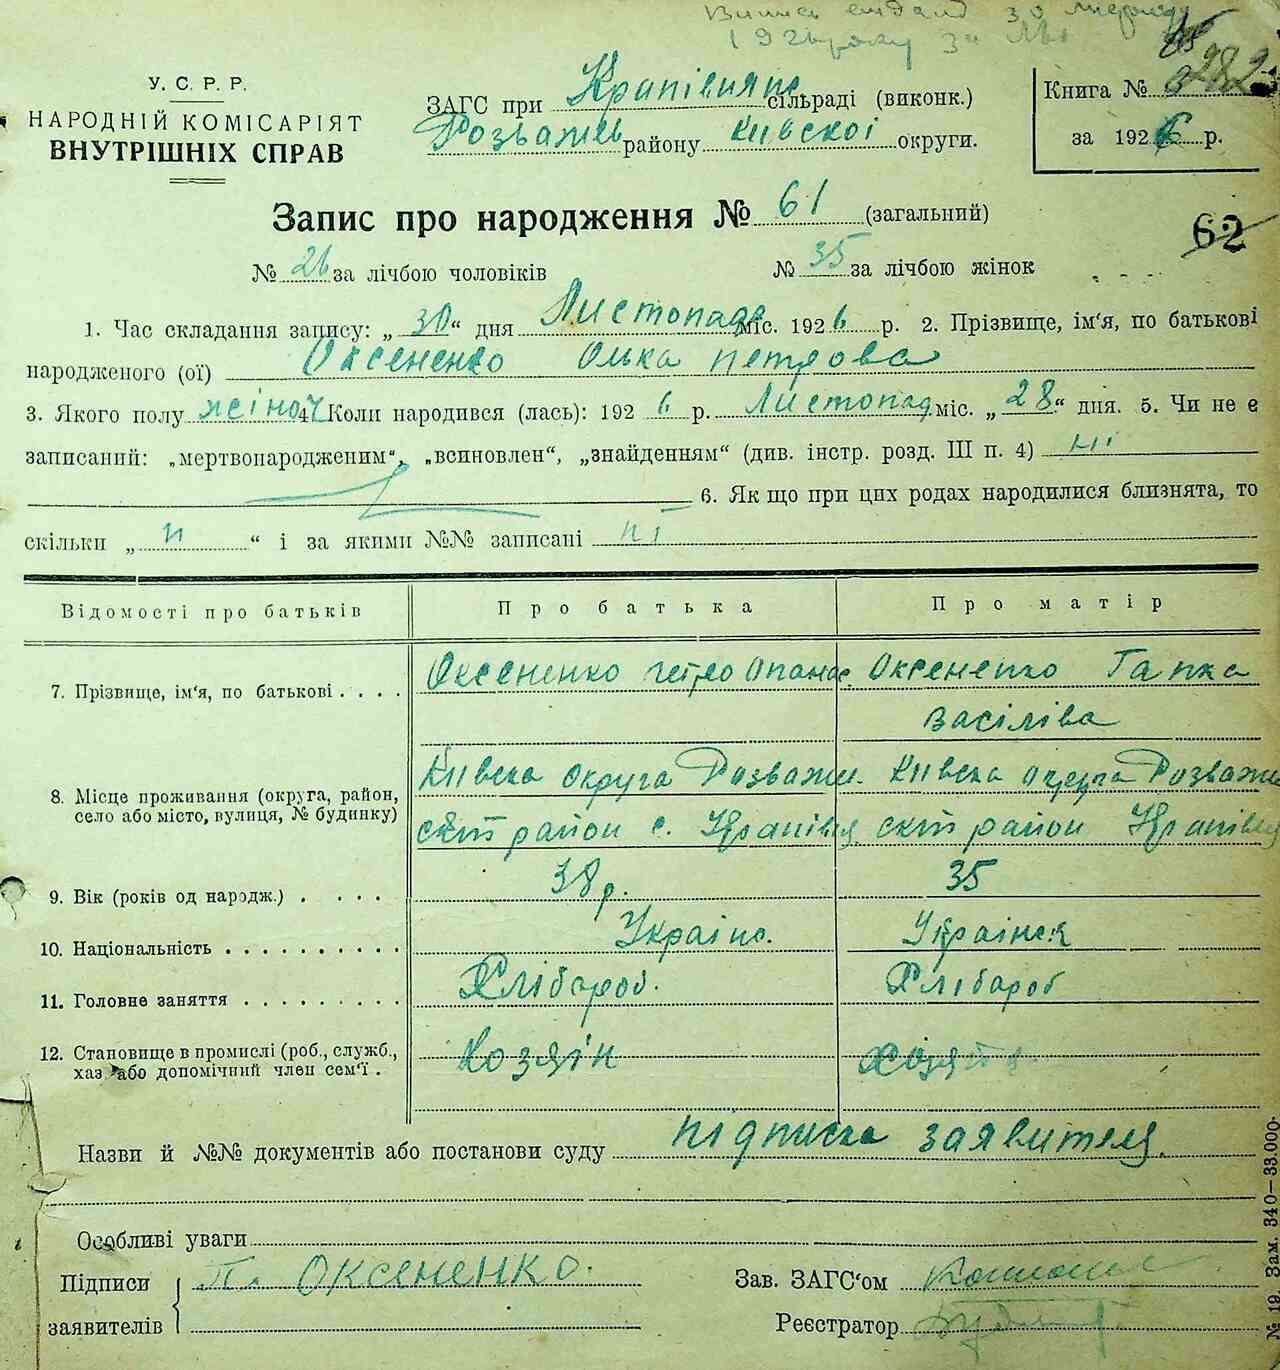 Випись видана 30 листопаду
1926 року за №
У. С. Р. Р.
НАРОДНІЙ КОМІСАРІЯТ
ВНУТРІШНІХ СПРАВ
ЗАГС при Крапівнянс. сільраді (виконк.)
Розважев району Київскоі округи.
Книга № 282
за 1926 р.
Запис про народження № 61 (загальний)
62
№ 26 за лічбою чоловіків № 35 за лічбою жінок
1. Час складання запису: „ 30 “ дня Листопада міс. 1926 р. 2. Прізвище, ім'я, по батькові
народженого (ої) Оксененко Олька петрова
3. Якого полу жіноч 4. Коли народився (лась): 192 6 р. Листопад міс. „ 28 “ дня. 5. Чи не є
записаний: „мертвонародженим“, „всиновлен“, „знайденням“ (див. інстр. розд. III п. 4) ні
6. Як що при цих родах народилися близнята, то
скільки „ н “ і за якими №№ записані ні
Відомості про батьків Про батька Про матір
7. Прізвище, ім'я, по батькові . . . . Оксененко петро Опанас. Оксененко Гапка
Васіліва
8. Місце проживання (округа, район, село або місто, вулиця, № будинку) Київска округа Розважи. Київска округа Розважи
ский район с. Крапівня ский район Крапівня
9. Вік (років од народж.) . . . . 38 р. 35
10. Національність . . . . . . . . . . Українс. Українск
11. Головне заняття . . . . . . . . . Хлібароб. Хлібароб
12. Становище в промислі (роб., служб., хаз або допомічний член сем'ї . Хозяїн
Назви й №№ документів або постанови суду підписка заявителя.
Особливі уваги
Підписи заявителів П. Оксененко.
Зав. ЗАГС'ом
Реєстратор
№ 19. Зам. 340—33.000.